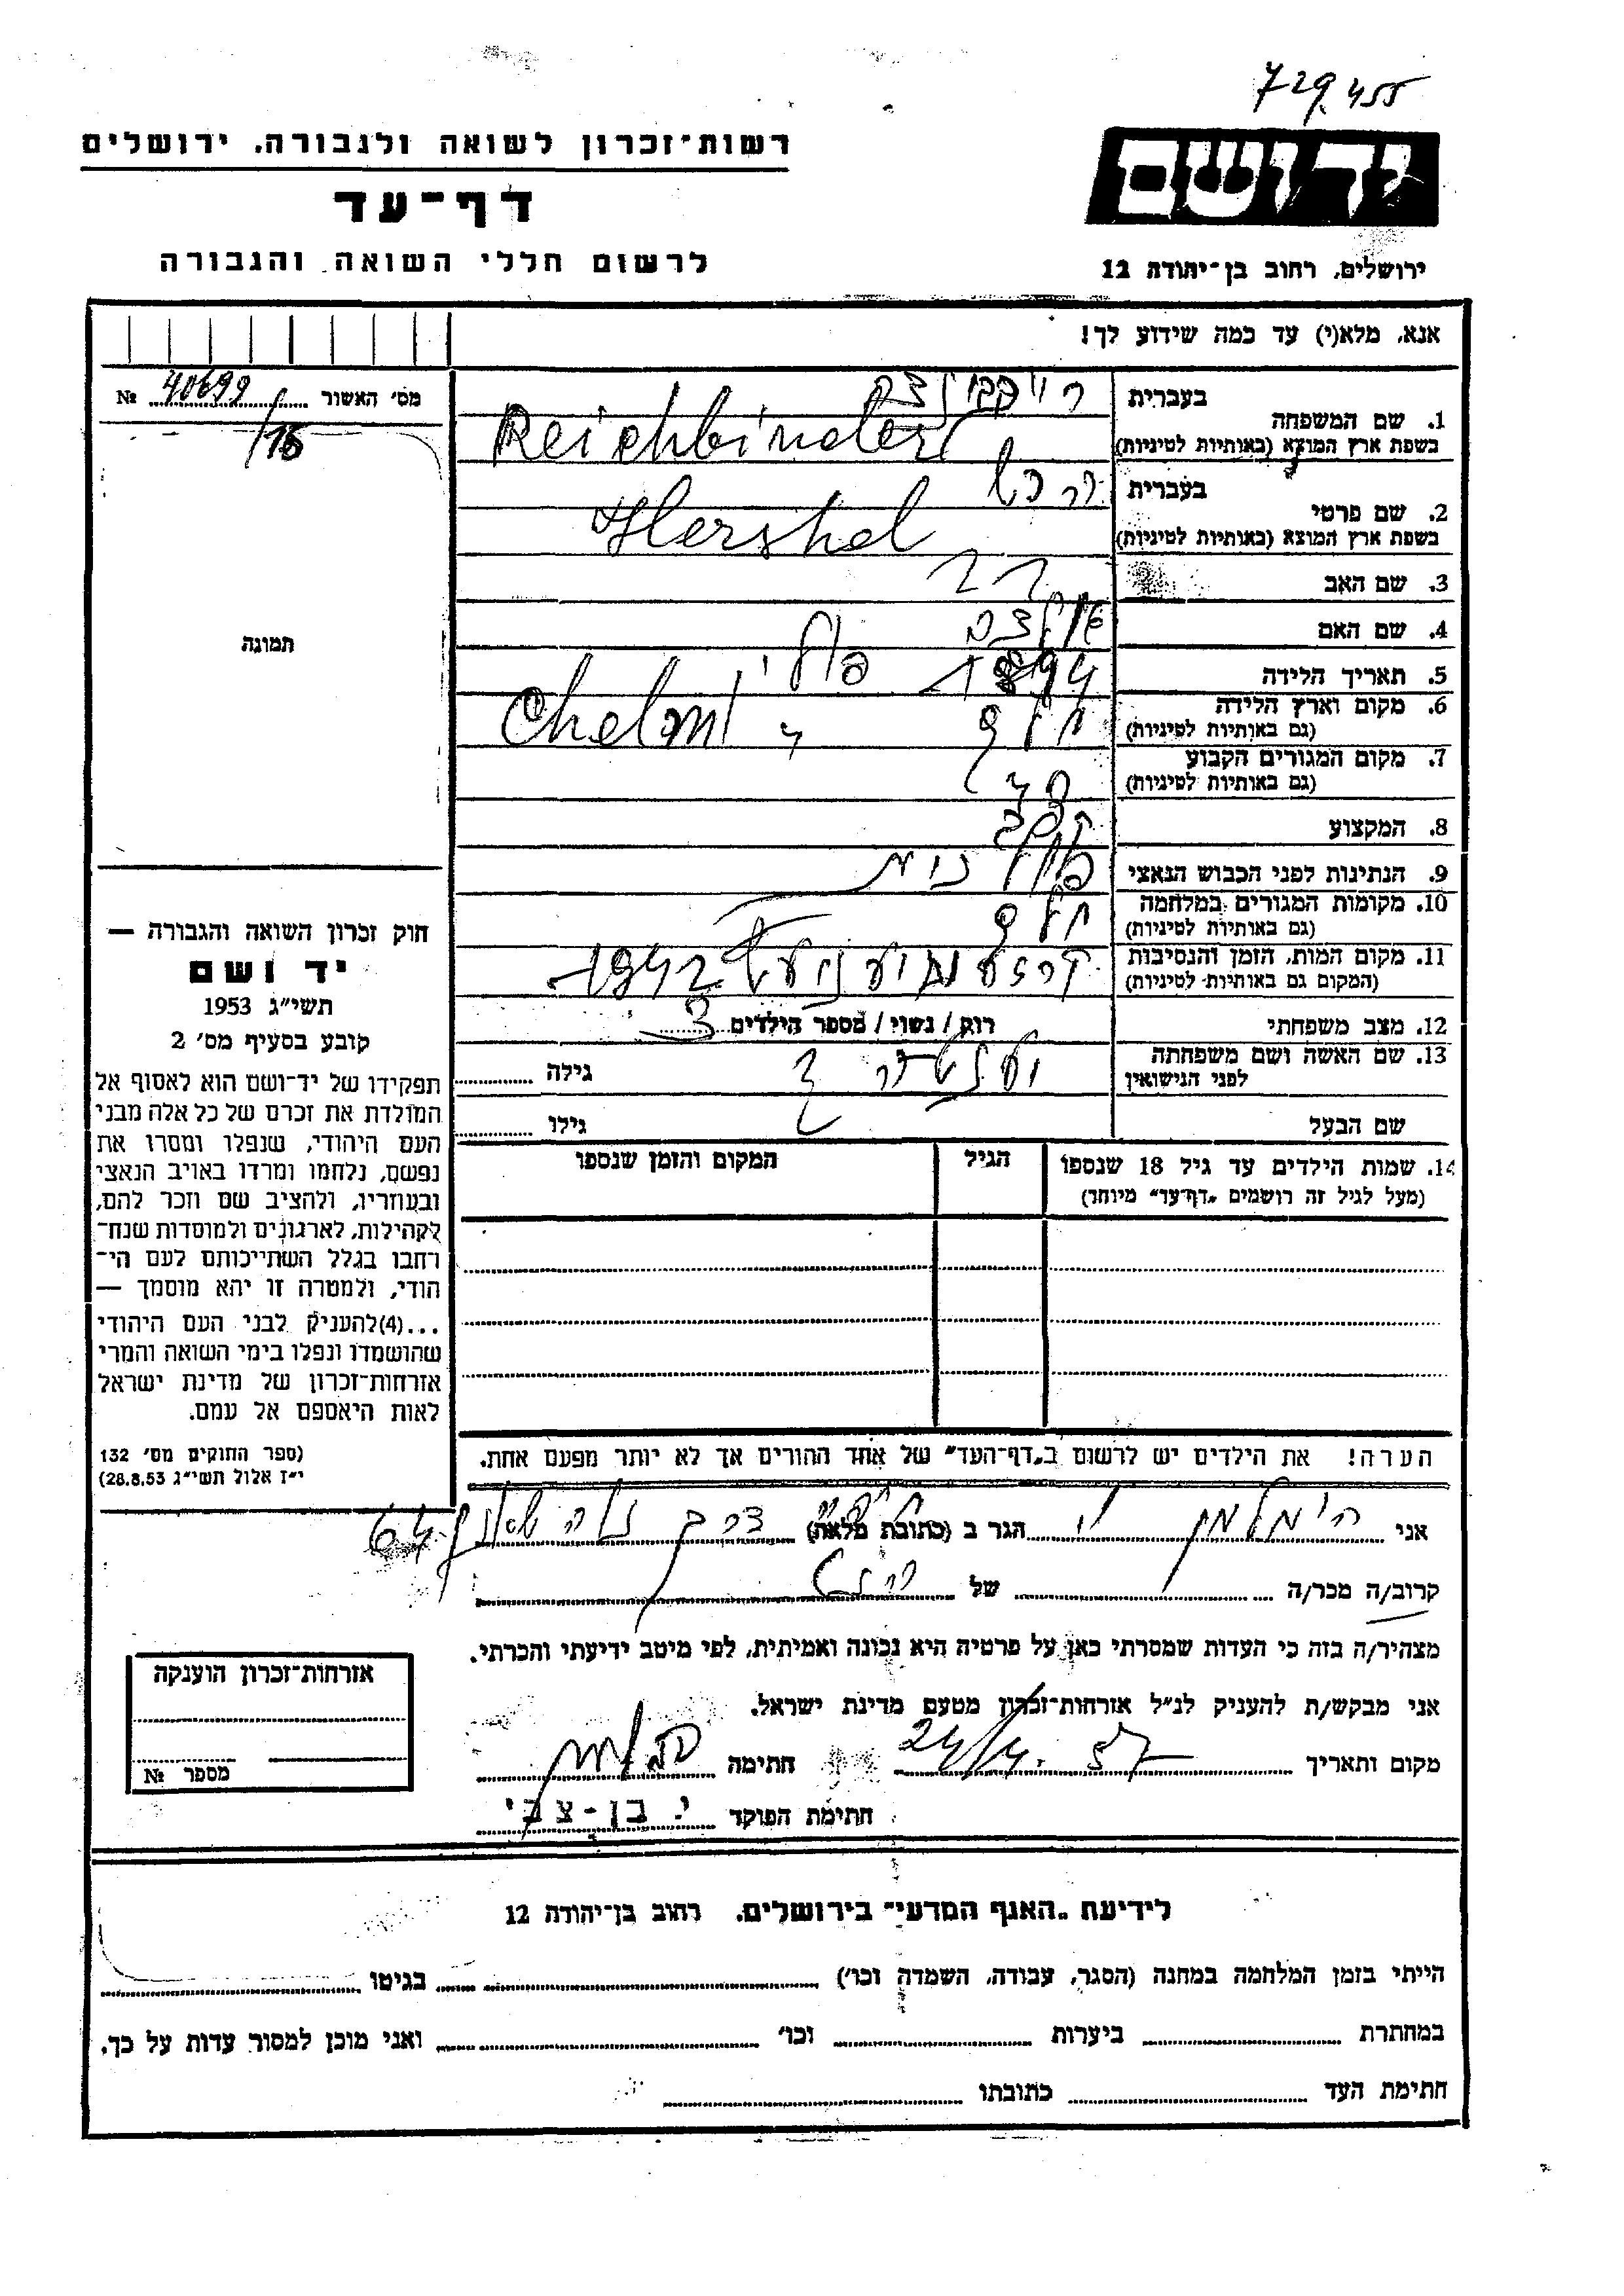 729.455
רשות-זכרון לשואה ולגבורה. ירושלים
יד ושם
דף-עד
לרשום חללי השואה והגבורה
ירושלים, רחוב בן-יהודה 12
אנא, מלא(י) עד כמה שידוע לך!
מס׳ האשור 40699 №
/15
תמונה
1. שם המשפחה
בעברית
בשפת ארץ המוצא (באותיות לטיניות) Reichbinder
2. שם פרטי
בעברית
בשפת ארץ המוצא (באותיות לטיניות) Hershel
3. שם האב
4. שם האם
5. תאריך הלידה 1894
6. מקום וארץ הלידה חלם Chelm
(גם באותיות לטיניות)
7. מקום המגורים הקבוע
(גם באותיות לטיניות)
8. המקצוע
9. הנתינות לפני הכבוש הנאצי פולנית
10. מקומות המגורים במלחמה חלם
(גם באותיות לטיניות)
11. מקום המות, הזמן והנסיבות 1942
(המקום גם באותיות לטיניות)
12. מצב משפחתי רוק / נשוי / מספר הילדים 3
13. שם האשה ושם משפחתה
לפני הנישואין
גילה
שם הבעל
גילו
14. שמות הילדים עד גיל 18 שנספו
(מעל לגיל זה רושמים „דף-עד" מיוחד)
הגיל
המקום והזמן שנספו
הערה! את הילדים יש לרשום ב„דף-העד" של אחד ההורים אך לא יותר מפעם אחת.
חוק זכרון השואה והגבורה —
יד ושם
תשי״ג 1953
קובע בסעיף מס׳ 2
תפקידו של יד-ושם הוא לאסוף אל
המולדת את זכרם של כל אלה מבני
העם היהודי, שנפלו ומסרו את
נפשם, נלחמו ומרדו באויב הנאצי
ובעוזריו, ולהציב שם וזכר להם,
לקהילות, לארגונים ולמוסדות שנח-
רחבו בגלל השתייכותם לעם הי-
הודי, ולמטרה זו יהא מוסמך —
...(4)להעניק לבני העם היהודי
שהושמדו ונפלו בימי השואה והמרי
אזרחות-זכרון של מדינת ישראל
לאות היאספם אל עמם.
(ספר החוקים מס׳ 132
י״ז אלול תשי״ג 28.8.53)
אני הגר ב (כתובת מלאה) חיפה דרך 64
קרוב/ה מכר/ה של
מצהיר/ה בזה כי העדות שמסרתי כאן על פרטיה היא נכונה ואמיתית, לפי מיטב ידיעתי והכרתי.
אני מבקש/ת להעניק לנ״ל אזרחות-זכרון מטעם מדינת ישראל.
מקום ותאריך 24/4. 57 חתימה
חתימת הפוקד י. בן-צבי
אזרחות-זכרון הוענקה
מספר №
לידיעת „האגף המדעי" בירושלים. רחוב בן-יהודה 12
הייתי בזמן המלחמה במחנה (הסגר, עבודה, השמדה וכו׳) בגיטו
במחתרת ביערות וכו׳ ואני מוכן למסור עדות על כך.
חתימת העד כתובתו